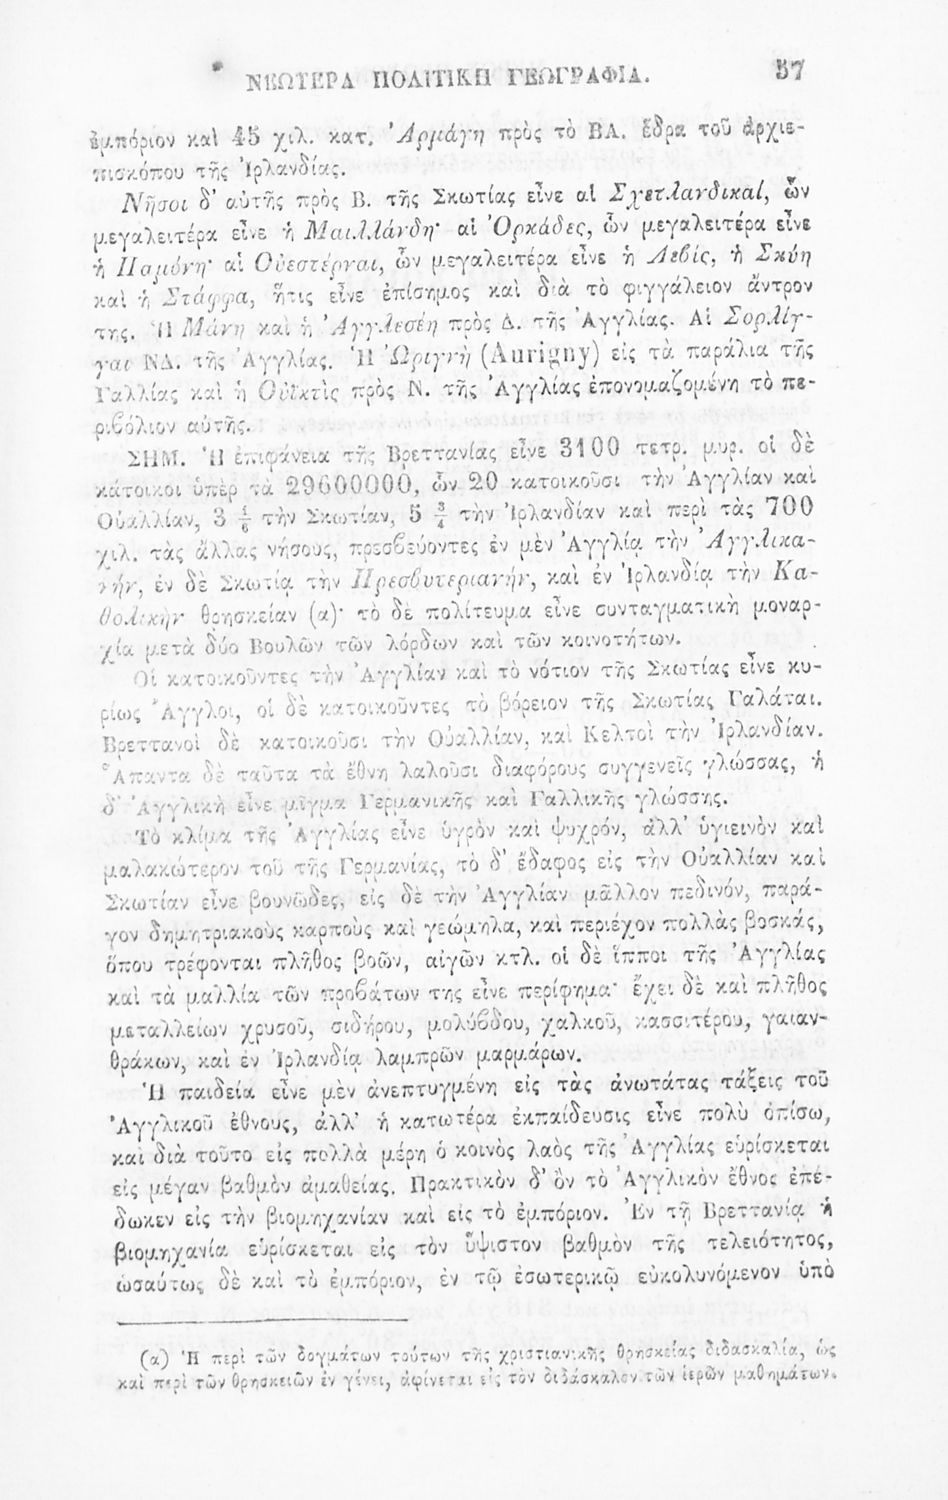 ΝΕΩΤΕΡΑ ΠΟΛΙΤΙΚΗ ΓΕΩΓΡΑΦΙΑ. 57
ἐμπόριον καὶ 45 χιλ. κατ. Ἀρμάγη πρὸς τὸ ΒΑ. ἕδρα τοῦ ἀρχιε-
πισκόπου τῆς Ἰρλανδίας.
Νῆσοι δ' αὐτῆς πρὸς Β. τῆς Σκωτίας εἶνε αἱ Σχετλανδικαί, ὧν
μεγαλειτέρα εἶνε ἡ Μαιλλάνδη· αἱ Ὀρκάδες, ὧν μεγαλειτέρα εἶνε
ἡ Παμόνη· αἱ Οὐεστέρναι, ὧν μεγαλειτέρα εἶνε ἡ Λεβίς, ἡ Σκύη
καὶ ἡ Στάφφα, ἥτις εἶνε ἐπίσημος καὶ διὰ τὸ φιγγάλειον ἄντρον
της. Ἡ Μάνη καὶ ἡ Ἀγγλεσέη πρὸς Δ. τῆς Ἀγγλίας. Αἱ Σορλίγ-
γαι ΝΔ. τῆς Ἀγγλίας. Ἡ Ὠριγνὴ (Aurigny) εἰς τὰ παράλια τῆς
Γαλλίας καὶ ἡ Οὐϊκτὶς πρὸς Ν. τῆς Ἀγγλίας ἐπονομαζομένη τὸ πε-
ριβόλιον αὐτῆς.
ΣΗΜ. Ἡ ἐπιφάνεια τῆς Βρεττανίας εἶνε 3100 τετρ. μυρ. οἱ δὲ
κάτοικοι ὑπὲρ τὰ 29600000, ὧν 20 κατοικοῦσι τὴν Ἀγγλίαν καὶ
Οὐαλλίαν, 3 1/6 τὴν Σκωτίαν, 5 3/4 τὴν Ἰρλανδίαν καὶ περὶ τὰς 700
χιλ. τὰς ἄλλας νήσους, πρεσβεύοντες ἐν μὲν Ἀγγλίᾳ τὴν Ἀγγλικα-
νήν, ἐν δὲ Σκωτίᾳ τὴν Πρεσβυτεριανήν, καὶ ἐν Ἰρλανδίᾳ τὴν Κα-
θολικὴν θρησκείαν (α)· τὸ δὲ πολίτευμα εἶνε συνταγματικὴ μοναρ-
χία μετὰ δύο Βουλῶν τῶν λόρδων καὶ τῶν κοινοτήτων.
Οἱ κατοικοῦντες τὴν Ἀγγλίαν καὶ τὸ νότιον τῆς Σκωτίας εἶνε κυ-
ρίως Ἄγγλοι, οἱ δὲ κατοικοῦντες τὸ βόρειον τῆς Σκωτίας Γαλάται.
Βρεττανοὶ δὲ κατοικοῦσι τὴν Οὐαλλίαν, καὶ Κελτοὶ τὴν Ἰρλανδίαν.
Ἅπαντα δὲ ταῦτα τὰ ἔθνη λαλοῦσι διαφόρους συγγενεῖς γλώσσας, ἡ
δ' Ἀγγλικὴ εἶνε μῖγμα Γερμανικῆς καὶ Γαλλικῆς γλώσσης.
Τὸ κλίμα τῆς Ἀγγλίας εἶνε ὑγρὸν καὶ ψυχρόν, ἀλλ' ὑγιεινὸν καὶ
μαλακώτερον τοῦ τῆς Γερμανίας, τὸ δ' ἔδαφος εἰς τὴν Οὐαλλίαν καὶ
Σκωτίαν εἶνε βουνῶδες, εἰς δὲ τὴν Ἀγγλίαν μᾶλλον πεδινόν, παρά-
γον δημητριακοὺς καρποὺς καὶ γεώμηλα, καὶ περιέχον πολλὰς βοσκάς,
ὅπου τρέφονται πλῆθος βοῶν, αἰγῶν κτλ. οἱ δὲ ἵπποι τῆς Ἀγγλίας
καὶ τὰ μαλλία τῶν προβάτων της εἶνε περίφημα· ἔχει δὲ καὶ πλῆθος
μεταλλείων χρυσοῦ, σιδήρου, μολύβδου, χαλκοῦ, κασσιτέρου, γαιαν-
θράκων, καὶ ἐν Ἰρλανδίᾳ λαμπρῶν μαρμάρων.
Ἡ παιδεία εἶνε μὲν ἀνεπτυγμένη εἰς τὰς ἀνωτάτας τάξεις τοῦ
Ἀγγλικοῦ ἔθνους, ἀλλ' ἡ κατωτέρα ἐκπαίδευσις εἶνε πολὺ ὀπίσω,
καὶ διὰ τοῦτο εἰς πολλὰ μέρη ὁ κοινὸς λαὸς τῆς Ἀγγλίας εὑρίσκεται
εἰς μέγαν βαθμὸν ἀμαθείας. Πρακτικὸν δ' ὂν τὸ Ἀγγλικὸν ἔθνος ἐπέ-
δωκεν εἰς τὴν βιομηχανίαν καὶ εἰς τὸ ἐμπόριον. Ἐν τῇ Βρεττανίᾳ ἡ
βιομηχανία εὑρίσκεται εἰς τὸν ὕψιστον βαθμὸν τῆς τελειότητος,
ὡσαύτως δὲ καὶ τὸ ἐμπόριον, ἐν τῷ ἐσωτερικῷ εὐκολυνόμενον ὑπὸ
(α) Ἡ περὶ τῶν δογμάτων τούτων τῆς χριστιανικῆς θρησκείας διδασκαλία, ὡς
καὶ περὶ τῶν θρησκειῶν ἐν γένει, ἀφίνεται εἰς τὸν διδάσκαλον τῶν ἱερῶν μαθημάτων.